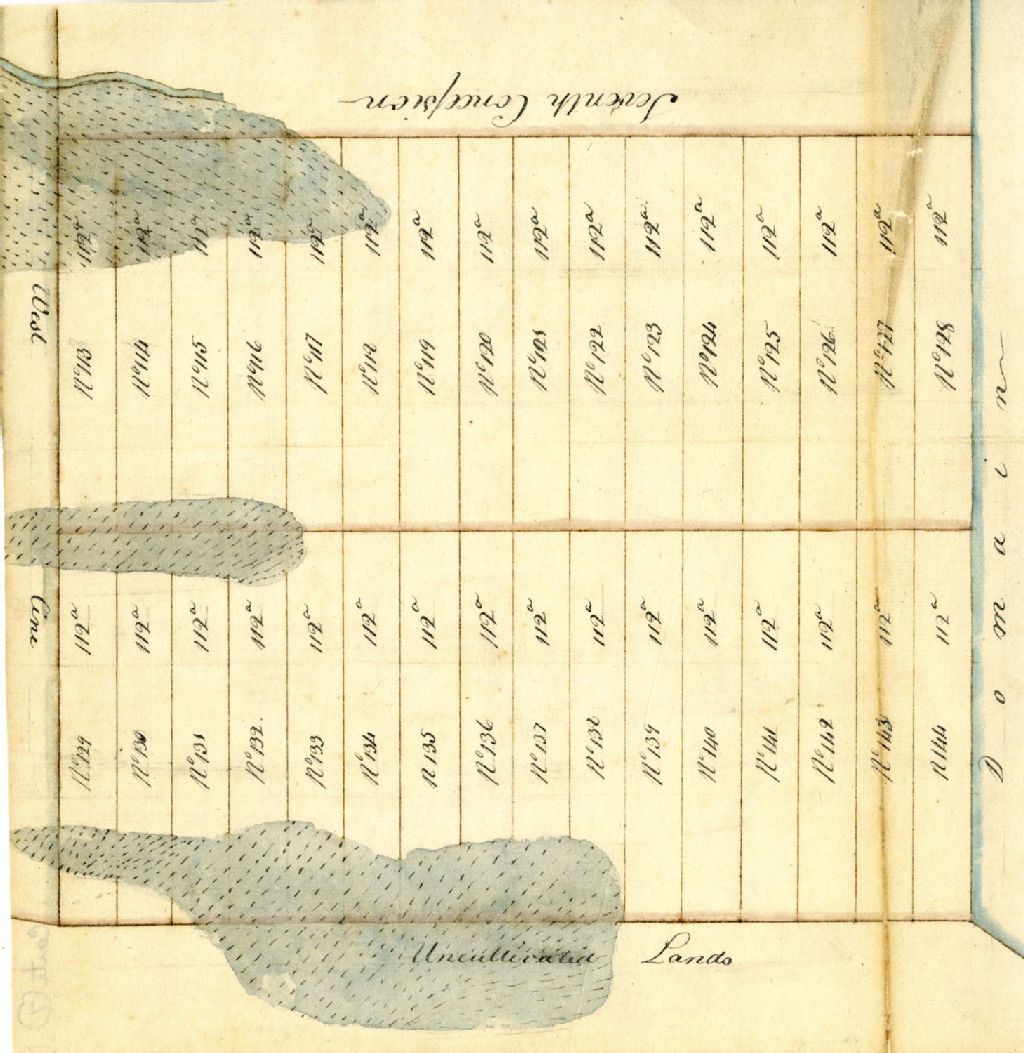 Seventh Concession
112a 112a 112a 112a 112a 112a 112a 112a 112a 112a 112a 112a 112a 112a 112a
West
No 113 No 114 No 115 No 116 No 117 No 118 No 119 No 120 No 121 No 122 No 123 No 124 No 125 No 126 No 127 No 128
Domain
Line
112a 112a 112a 112a 112a 112a 112a 112a 112a 112a 112a 112a 112a 112a 112a 112a
No 129 No 130 No 131 No 132 No 133 No 134 N 135 No 136 No 137 No 138 No 139 No 140 No 141 No 142 No 143 N 144
Uncultivated Lands